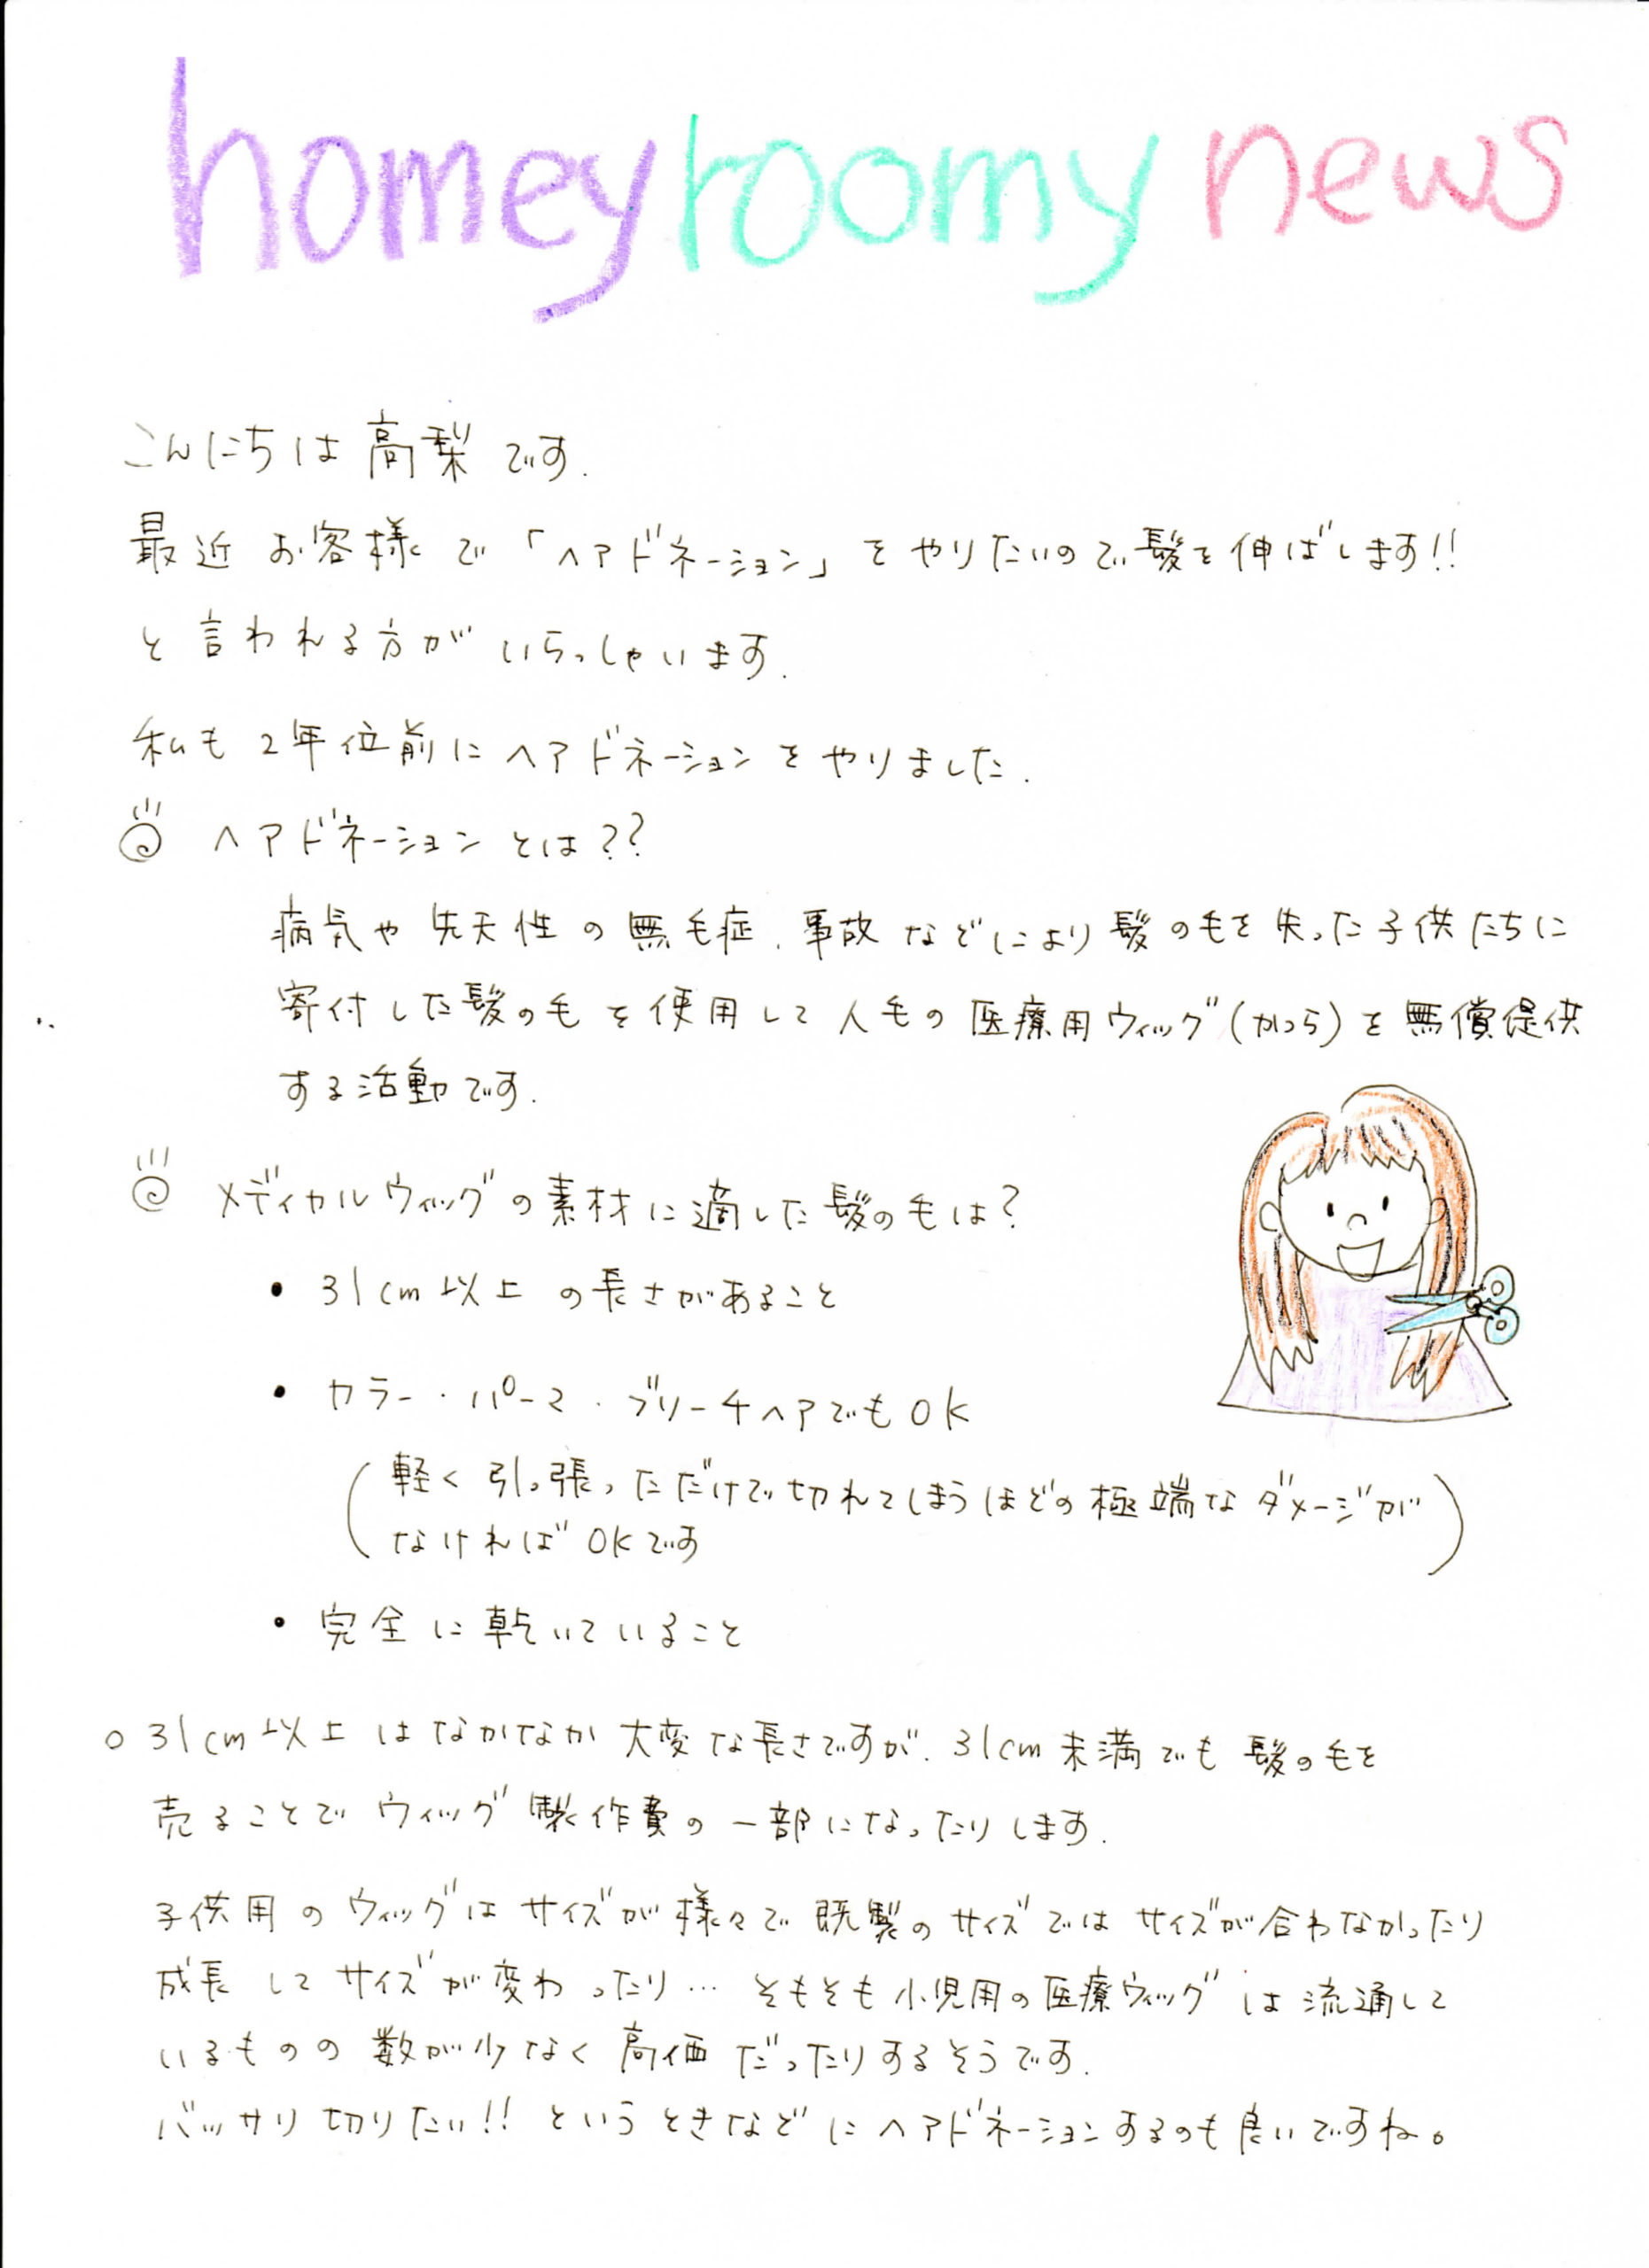 homey roomy news
こんにちは高梨です.
最近お客様で「ヘアドネーション」をやりたいので髪を伸ばします!!
と言われる方がいらっしゃいます.
私も2年位前にヘアドネーションをやりました.
ヘアドネーションとは??
病気や先天性の無毛症、事故などにより髪の毛を失った子供たちに
寄付した髪の毛を使用して人毛の医療用ウィッグ(かつら)を無償提供
する活動です.
メディカルウィッグの素材に適した髪の毛は?
• 31cm以上の長さがあること
• カラー・パーマ・ブリーチヘアでもOK
(軽く引っ張っただけで切れてしまうほどの極端なダメージが
なければOKです)
• 完全に乾いていること
○ 31cm以上はなかなか大変な長さですが、31cm未満でも髪の毛を
売ることでウィッグ製作費の一部になったりします.
子供用のウィッグはサイズが様々で既製のサイズではサイズが合わなかったり
成長してサイズが変わったり…そもそも小児用の医療ウィッグは流通して
いるものの数が少なく高価だったりするそうです.
バッサリ切りたい!!というときなどにヘアドネーションするのも良いですね。